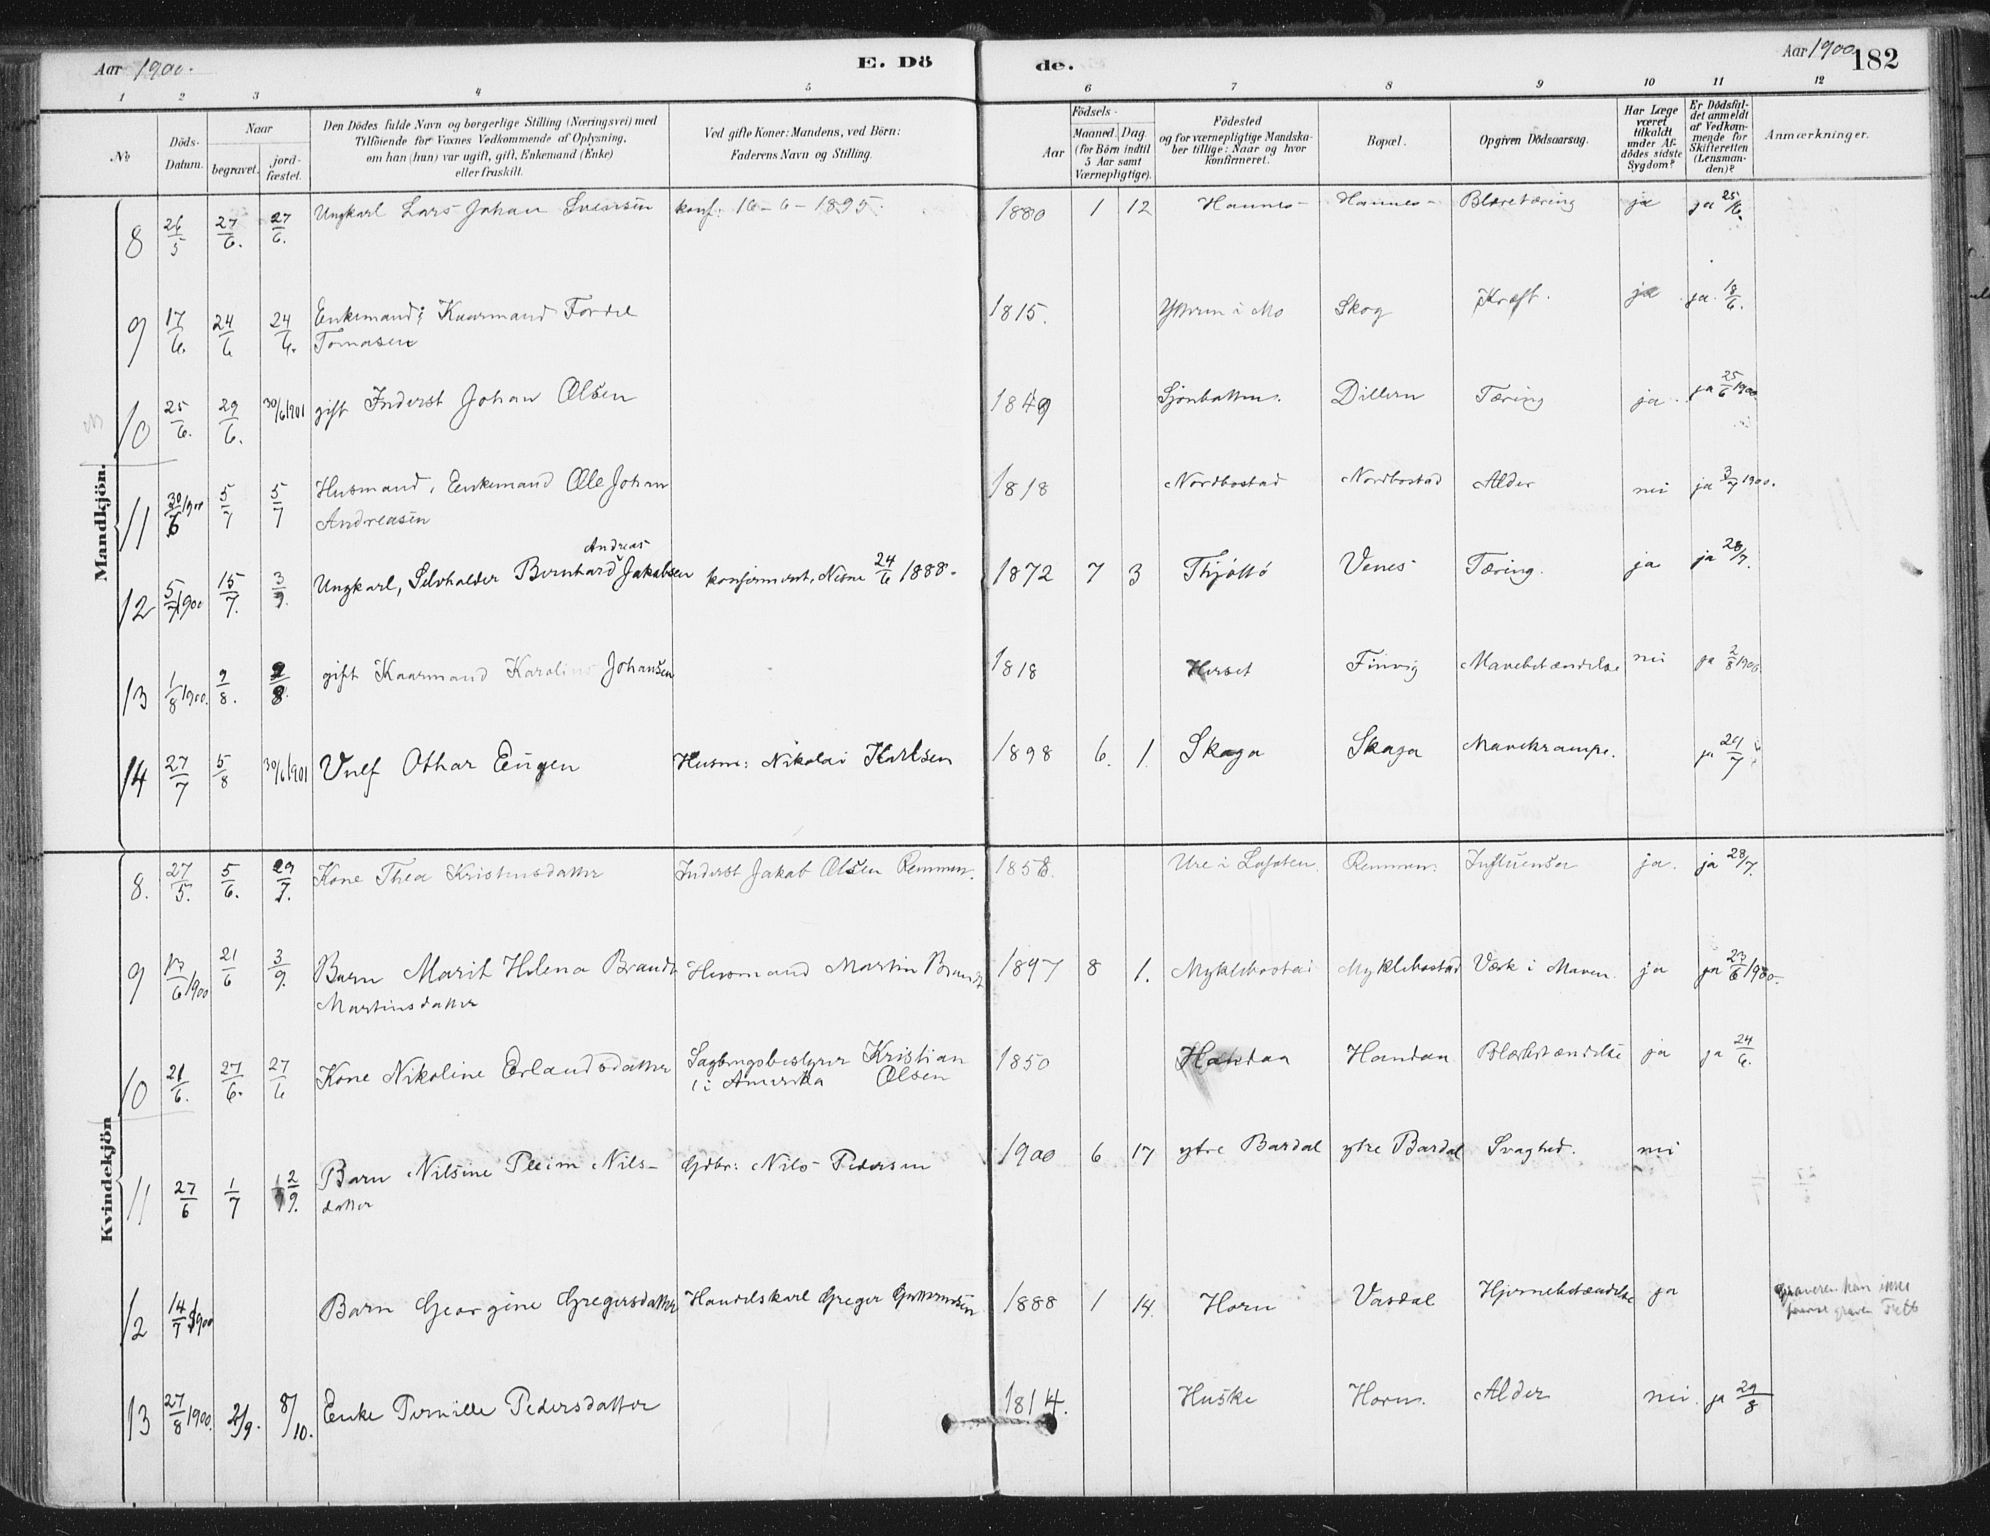 Aar 1900. E. Dö de. Aar 1900. 182
1 2 3 4 5 6 7 8 9 10 11 12
No
Döds-
Datum.
Naar
begravet.
jord-
fæstet.
Den Dödes fulde Navn og borgerlige Stilling (Næringsvei) med
Tilföiende for Voxnes Vedkommende af Oplysning,
om han (hun) var ugift, gift, Enkemand (Enke)
eller fraskilt.
Ved gifte Koner: Mandens, ved Börn:
Faderens Navn og Stilling.
Födsels-
Aar
Maaned. Dag.
(for Börn indtil
5 Aar samt
Værnepligtige).
Födested
og for værnepligtige Mandska-
ber tillige: Naar og hvor
konfirmeret.
Bopæl.
Opgiven Dödsaarsag.
Har Læge
været
tilkaldt
under Af-
dödes sidste
Sygdom?
Er Dödsfal-
det anmeldt
af Vedkom-
mende for
Skifteretten
(Lensman-
den)?
Anmærkninger.
Mandkjön.
8 26/5 27/6. 27/6. Ungkarl Lars Johan Svensen konf. 16-6-1895. 1880 1 12 Hannes- Hannes- Blæretæring ja ja 25/6.
9 17/6. 24/6 24/6. Enkemand; Kaarmand Fordel 1815. Ytteren i Mo Skog Kræft. ja ja. 18/6.
Tomasen
10 25/6. 29/6. 30/6 1901 gift Inderst Johan Olsen 1849 Sjonbotten. Dillern Tæring ja. ja 25/6 1900
11 30/6 1900 5/7 5/7 Husmand, Enkemand Ole Johan 1818 Nordbostad Nordbostad Alder nei ja 3/7 1900.
Andreasen
Andreas
12 5/7 1900 15/7. 3/9. Ungkarl, Selvholder Bernhard Jakobsen konfirmert, Nesne 24/6 1888. 1872 7 3 Thjöttö Venes Tæring. ja ja 28/7.
13 1/8 1900. 9/8. 9/8. gift Kaarmand Karolius Johansen 1818 Herset Finvig Mavebetændelse nei ja 2/8 1900.
14 27/7 5/8 30/6 1901 Vulf Othar Eugen Husm: Nikolai Karlsen 1898 6. 1. Skaga Skaga Mavekrampe. ja 29/7
Kvindekjön
8. 27/5. 5/6. 29/7. Kone Thea Kristensdatter Inderst Jakob Olsen Remmen. 1858. Ure i Lofoten. Remmen. Influensa ja. ja 28/7.
9 17/6 1900 21/6 3/9. Barn Marit Helena Brandt Husmand Martin Brandt 1897 8 1. Myklebostad Myklebostad Værk i Maven. ja ja 23/6 1900.
Martinsdatter
10 21/6. 27/6. 27/6 Kone Nikoline Erlandsdatter Sagbrugsbestyrer Kristian 1850 Handaa Handaa Blærbetændelse ja ja 24/6.
i Amerika Olsen
11 27/6 1/7 2/9. Barn Nilsine Pleim Nils- Gdbr: Nils Pedersen 1900 6 17 ytre Bardal ytre Bardal Svaghed. nei
datter
12 14/7 1900 Barn Georgine Gregersdatter Handelskarl Greger 1888 1 14. Horn Vasdal Hjernebetændelse ja Graveren kan ikke
graven
13 27/8 1900. 2/9. 8/10. Enke Pernille Pedersdatter 1814. Huske Horn. Alder nei. ja 29/8